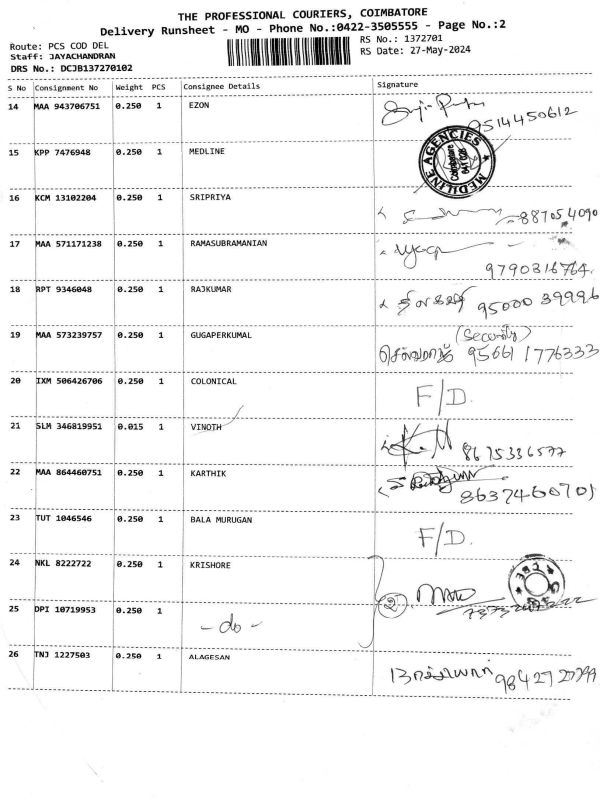 THE PROFESSIONAL COURIERS, COIMBATORE
Delivery Runsheet - MO - Phone No.:0422-3505555 - Page No.:2
Route: PCS COD DEL
Staff: JAYACHANDRAN
DRS No.: DCJB137270102
RS No.: 1372701
RS Date: 27-May-2024
S No Consignment No Weight PCS Consignee Details Signature
14 MAA 943706751 0.250 1 EZON 9514450612
15 KPP 7476948 0.250 1 MEDLINE
MEDILINE AGENCIES
Coimbatore
641 028
16 KCM 13102204 0.250 1 SRIPRIYA
17 MAA 571171238 0.250 1 RAMASUBRAMANIAN 9790316764
18 RPT 9346048 0.250 1 RAJKUMAR 95000 39996
19 MAA 573239757 0.250 1 GUGAPERKUMAL (Security)
20 IXM 506426706 0.250 1 COLONICAL F/D.
21 SLM 346819951 0.015 1 VINOTH 8675336577
22 MAA 864460751 0.250 1 KARTHIK 8637460701
23 TUT 1046546 0.250 1 BALA MURUGAN F/D.
24 NKL 8222722 0.250 1 KRISHORE 2
25 DPI 10719953 0.250 1 - do -
26 TNJ 1227503 0.250 1 ALAGESAN